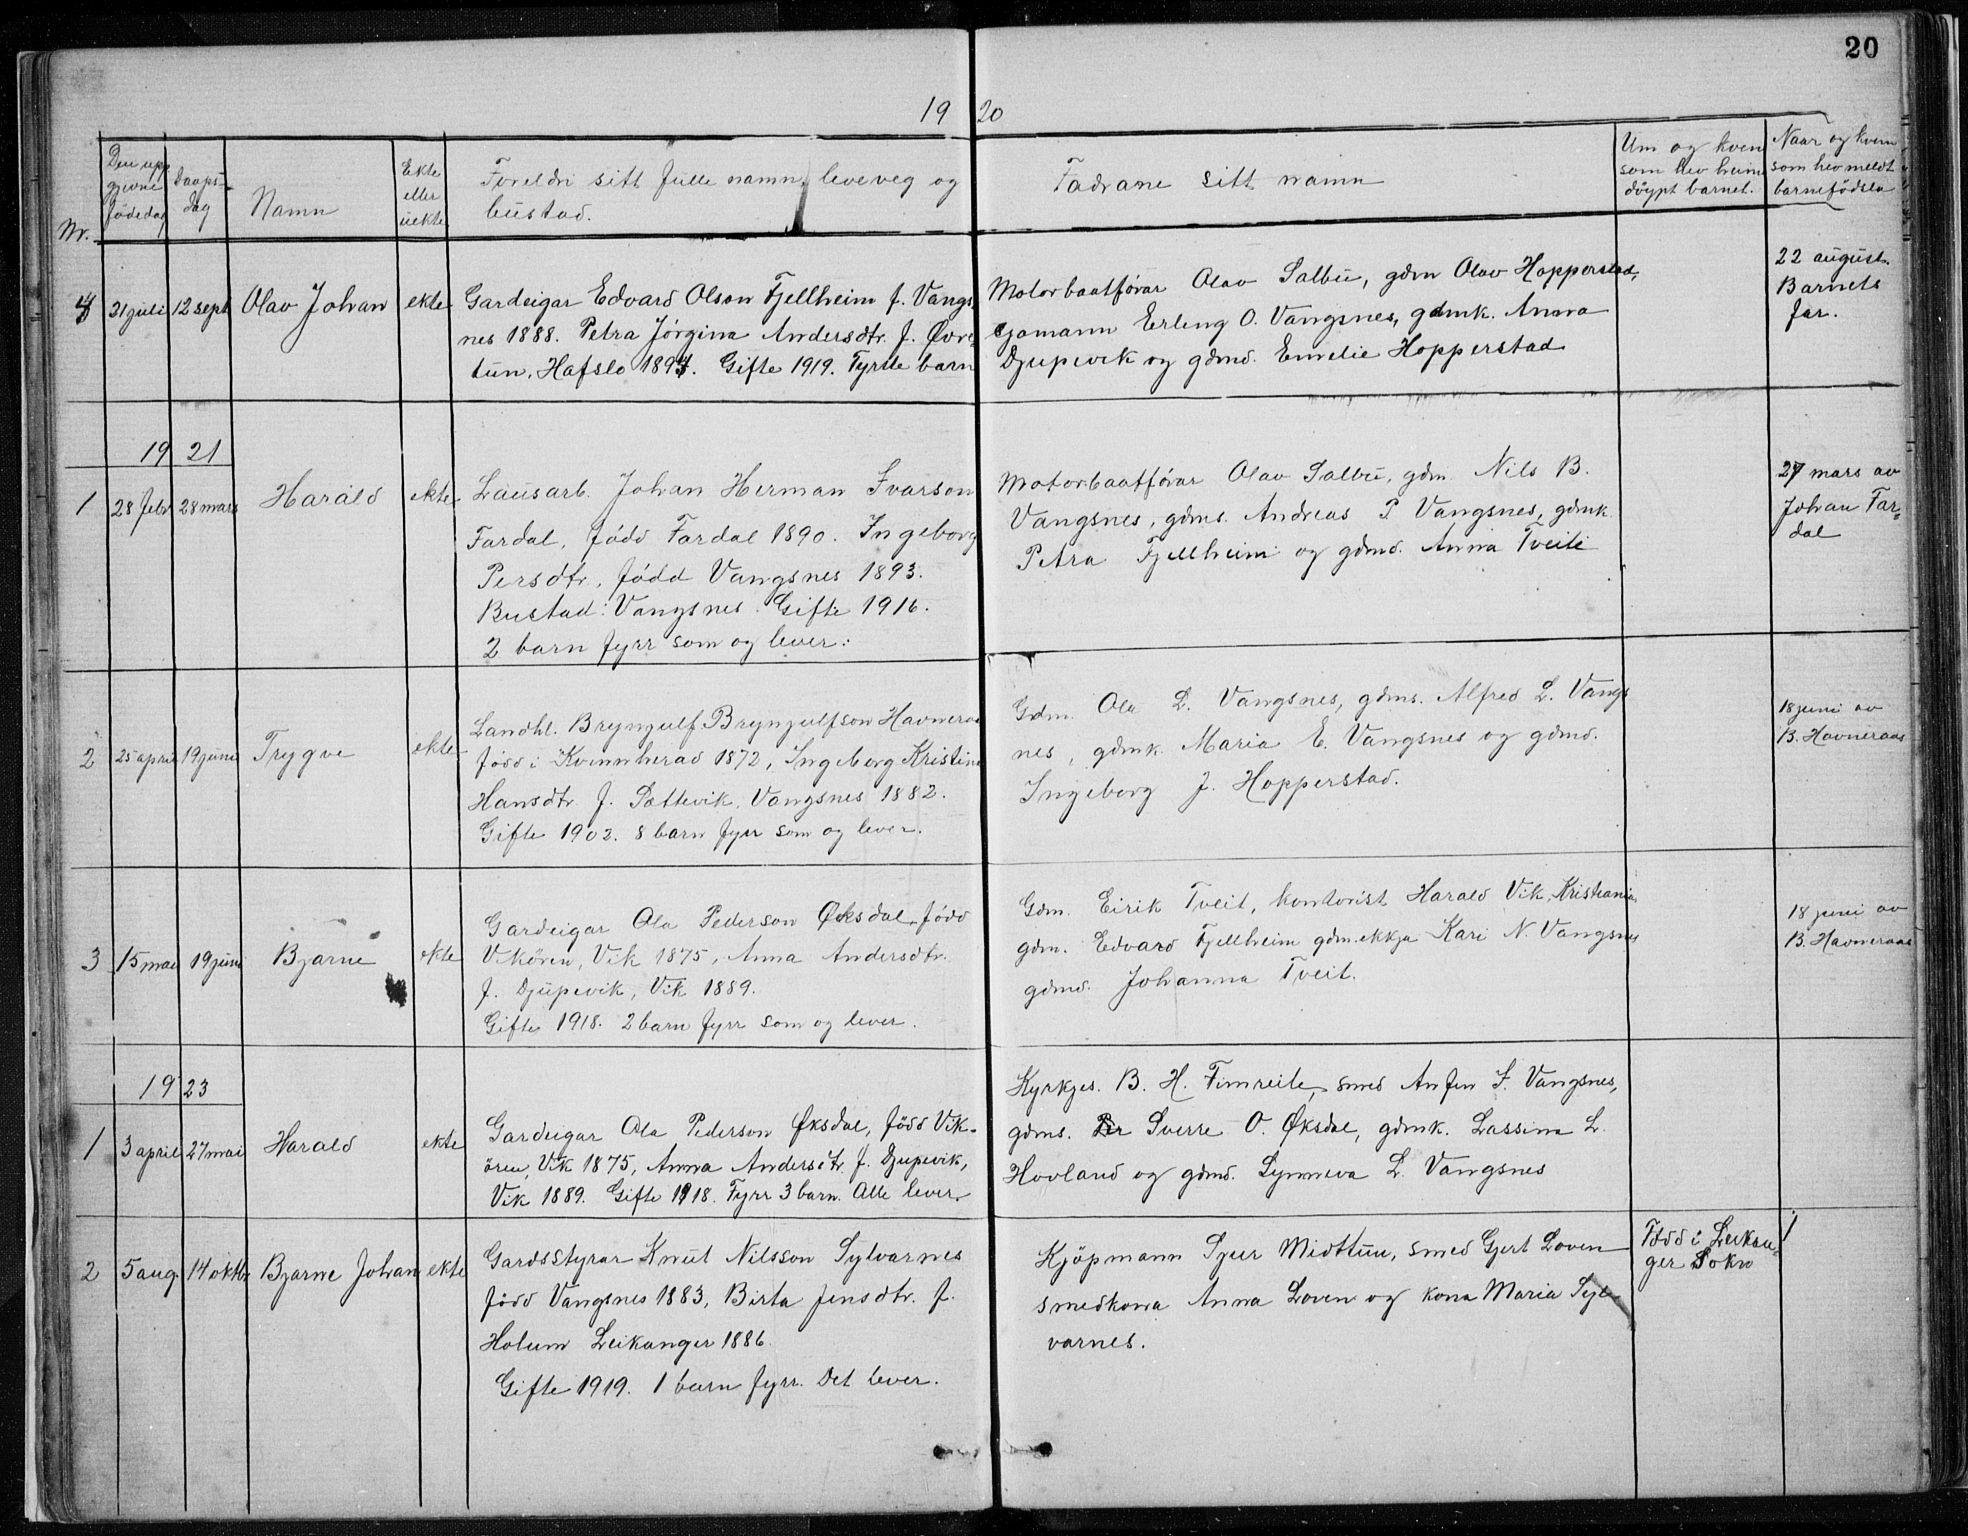 20
19 20
Nr.
Den upp
gjevne
födedag
Daaps-
dag
Namn
Ekte
eller
uekte
Foreldri sitt fulle namn, leveveg og
bustad.
Fadrane sitt namn
Um og kven
som hev heim
döypt barnet.
Naar og kven
som hev meldt
barnefödsla
4 21 juli 12 sept Olav Johan ekte
Gardeigar Edvard Olson Fjellheim f. Vangs
nes 1888. Petra Jörgina Andersdtr. f. Övre-
tun, Hafslo 1894. Gifte 1919. Fyrste barn
Motorbaatförar Olav Salbu, gdm Olav Hopperstad,
sjomann Erling O. Vangsnes, gdmk. Anna
Djupevik og gdmd. Emelie Hopperstad
22 august.
Barnets
far.
19 21
1 28 febr 28 mars Harald ekte
Lausarb. Johan Herman Ivarson
Fardal, född Fardal 1890. Ingeborg
Persdtr, född Vangsnes 1893.
Bustad: Vangsnes. Gifte 1916.
2 barn fyrr som og lever.
Motorbaatförar Olav Salbu, gdm. Nils B.
Vangsnes, gdms. Andreas P Vangsnes, gdmk
Petra Fjellheim og gdmd. Anna Tveit
27 mars av
Johan Far-
dal
2 25 april 19 juni Trygve ekte
Landhl. Brynjulf Brynjulfson Havneraas
född i Kvinnherad 1872, Ingeborg Kristina
Hansdtr f. Sættevik, Vangsnes 1882.
Gifte 1902. 8 barn fyrr som og lever.
Gdm. Ola L. Vangsnes, gdms. Alfred L. Vangs
nes, gdmk. Maria E. Vangsnes og gdmd.
Ingeborg J. Hopperstad.
18 juni av
B. Havneraas
3 15 mai 19 juni Bjarne ekte
Gardeigar Ola Pederson Öksdal, född
Vikören, Vik 1875, Anna Andersdtr.
f. Djupevik, Vik 1889.
Gifte 1918. 2 barn fyrr som og lever.
Gdm. Eirik Tveit, kontorist Harald Vik, Kristiania,
gdm. Edvard Fjellheim gdm.ekkja Kari N. Vangsnes
gdmd. Johanna Tveit.
18 juni av
B. Havneraas
19 23
1 3 april 27 mai Harald ekte
Gardeigar Ola Pederson Øksdal, född Vik-
ören, Vik 1875, Anna Andersdtr. f. Djupevik,
Vik 1889. Gifte 1918. Fyrr 3 barn. Alle lever.
Kyrkjes. B. H. Fimreite, smed Anfin I. Vangsnes,
gdms. Sverre O. Øksdal, gdmk. Lassina L.
Hovland og gdmd. Synneva L. Vangsnes
2 5 aug. 14 oktbr Bjarne Johan ekte
Gardsstyrar Knut Nilsson Sylvarnes
född Vangsnes 1883, Birta Jensdtr. f.
Holum Leikanger 1886.
Gifte 1919. 1 barn fyrr. Det lever.
Kjöpmann Sjur Midttun, smed Gjert Loven
smedkona Anna Loven og kona Maria Syl-
varnes.
Född i Leikan-
ger Sokn